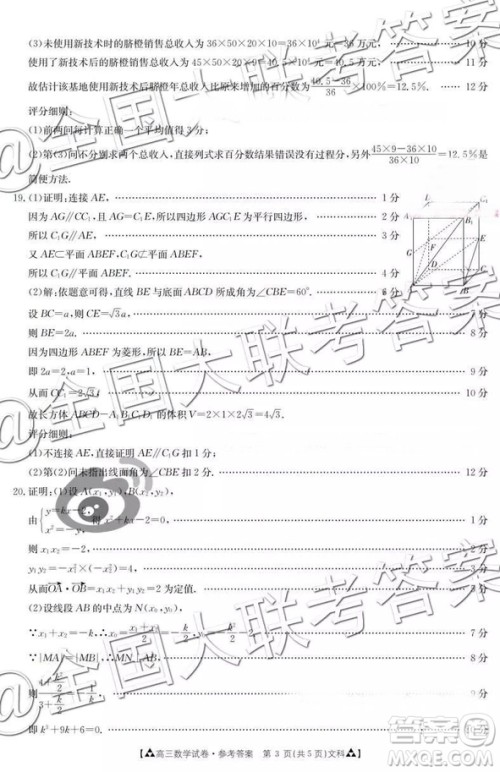 (3)未使用新技术时的脐橙销售总收入为36×50×20×10=36×10⁴元=36万元, 10分
使用了新技术后的脐橙销售总收入为45×50×20×9=40.5×10⁴元=40.5万元, 11分
故估计该基地使用新技术后脐橙年总收入比原来增加的百分数为(40.5-36)/36×100%=12.5%. 12分
评分细则:
(1)前两问每计算正确一个平均值得3分;
(2)第(3)问不分别求两个总收入,直接列式求百分数结果错误没有过程分,(45×9-36×10)/(36×10)=12.5%是
简便方法.
19.(1)证明:连接AE, 1分
因为AG∥CC₁,且AG=CC₁,所以四边形AGC₁E为平行四边形, 2分
所以C₁G∥AE, 3分
又AE⊂平面ABEF,C₁G⊄平面ABEF,
所以C₁G∥平面ABEF. 4分
(2)解:依题意可得,直线BE与底面ABCD所成角为∠CBE=60°.
设BC=a,则CE=√3a, 7分
则BE=2a. 8分
因为四边形ABEF为菱形,所以BE=AB,
即2a=2,a=1, 9分
从而CC₁=2√3,
故长方体ABCD-A₁B₁C₁D₁的体积V=2×1×2√3=4√3. 12分
评分细则:
(1)不连接AE,直接写AE∥C₁G扣1分;
(2)第(2)问未指出线面角为∠CBE扣2分.
20.证明:(1)设A(x₁,y₁),B(x₂,y₂),
由 得x²+kx-2=0, 1分
则x₁x₂=-2, 2分
y₁y₂=-x₁²×(-x₂²)=4, 4分
从而OA·OB=x₁x₂+y₁y₂=2为定值. 5分
(2)设线段AB的中点为N(x₀,y₀),
7分
∵|MA|=|MB|,∴MN⊥AB, 8分
9分
即k³+9k+6=0. 10分
高三数学试卷·参考答案 第3页(共5页)文科
@全国大联考答案
@全国大联考答案
@全国大联考答案